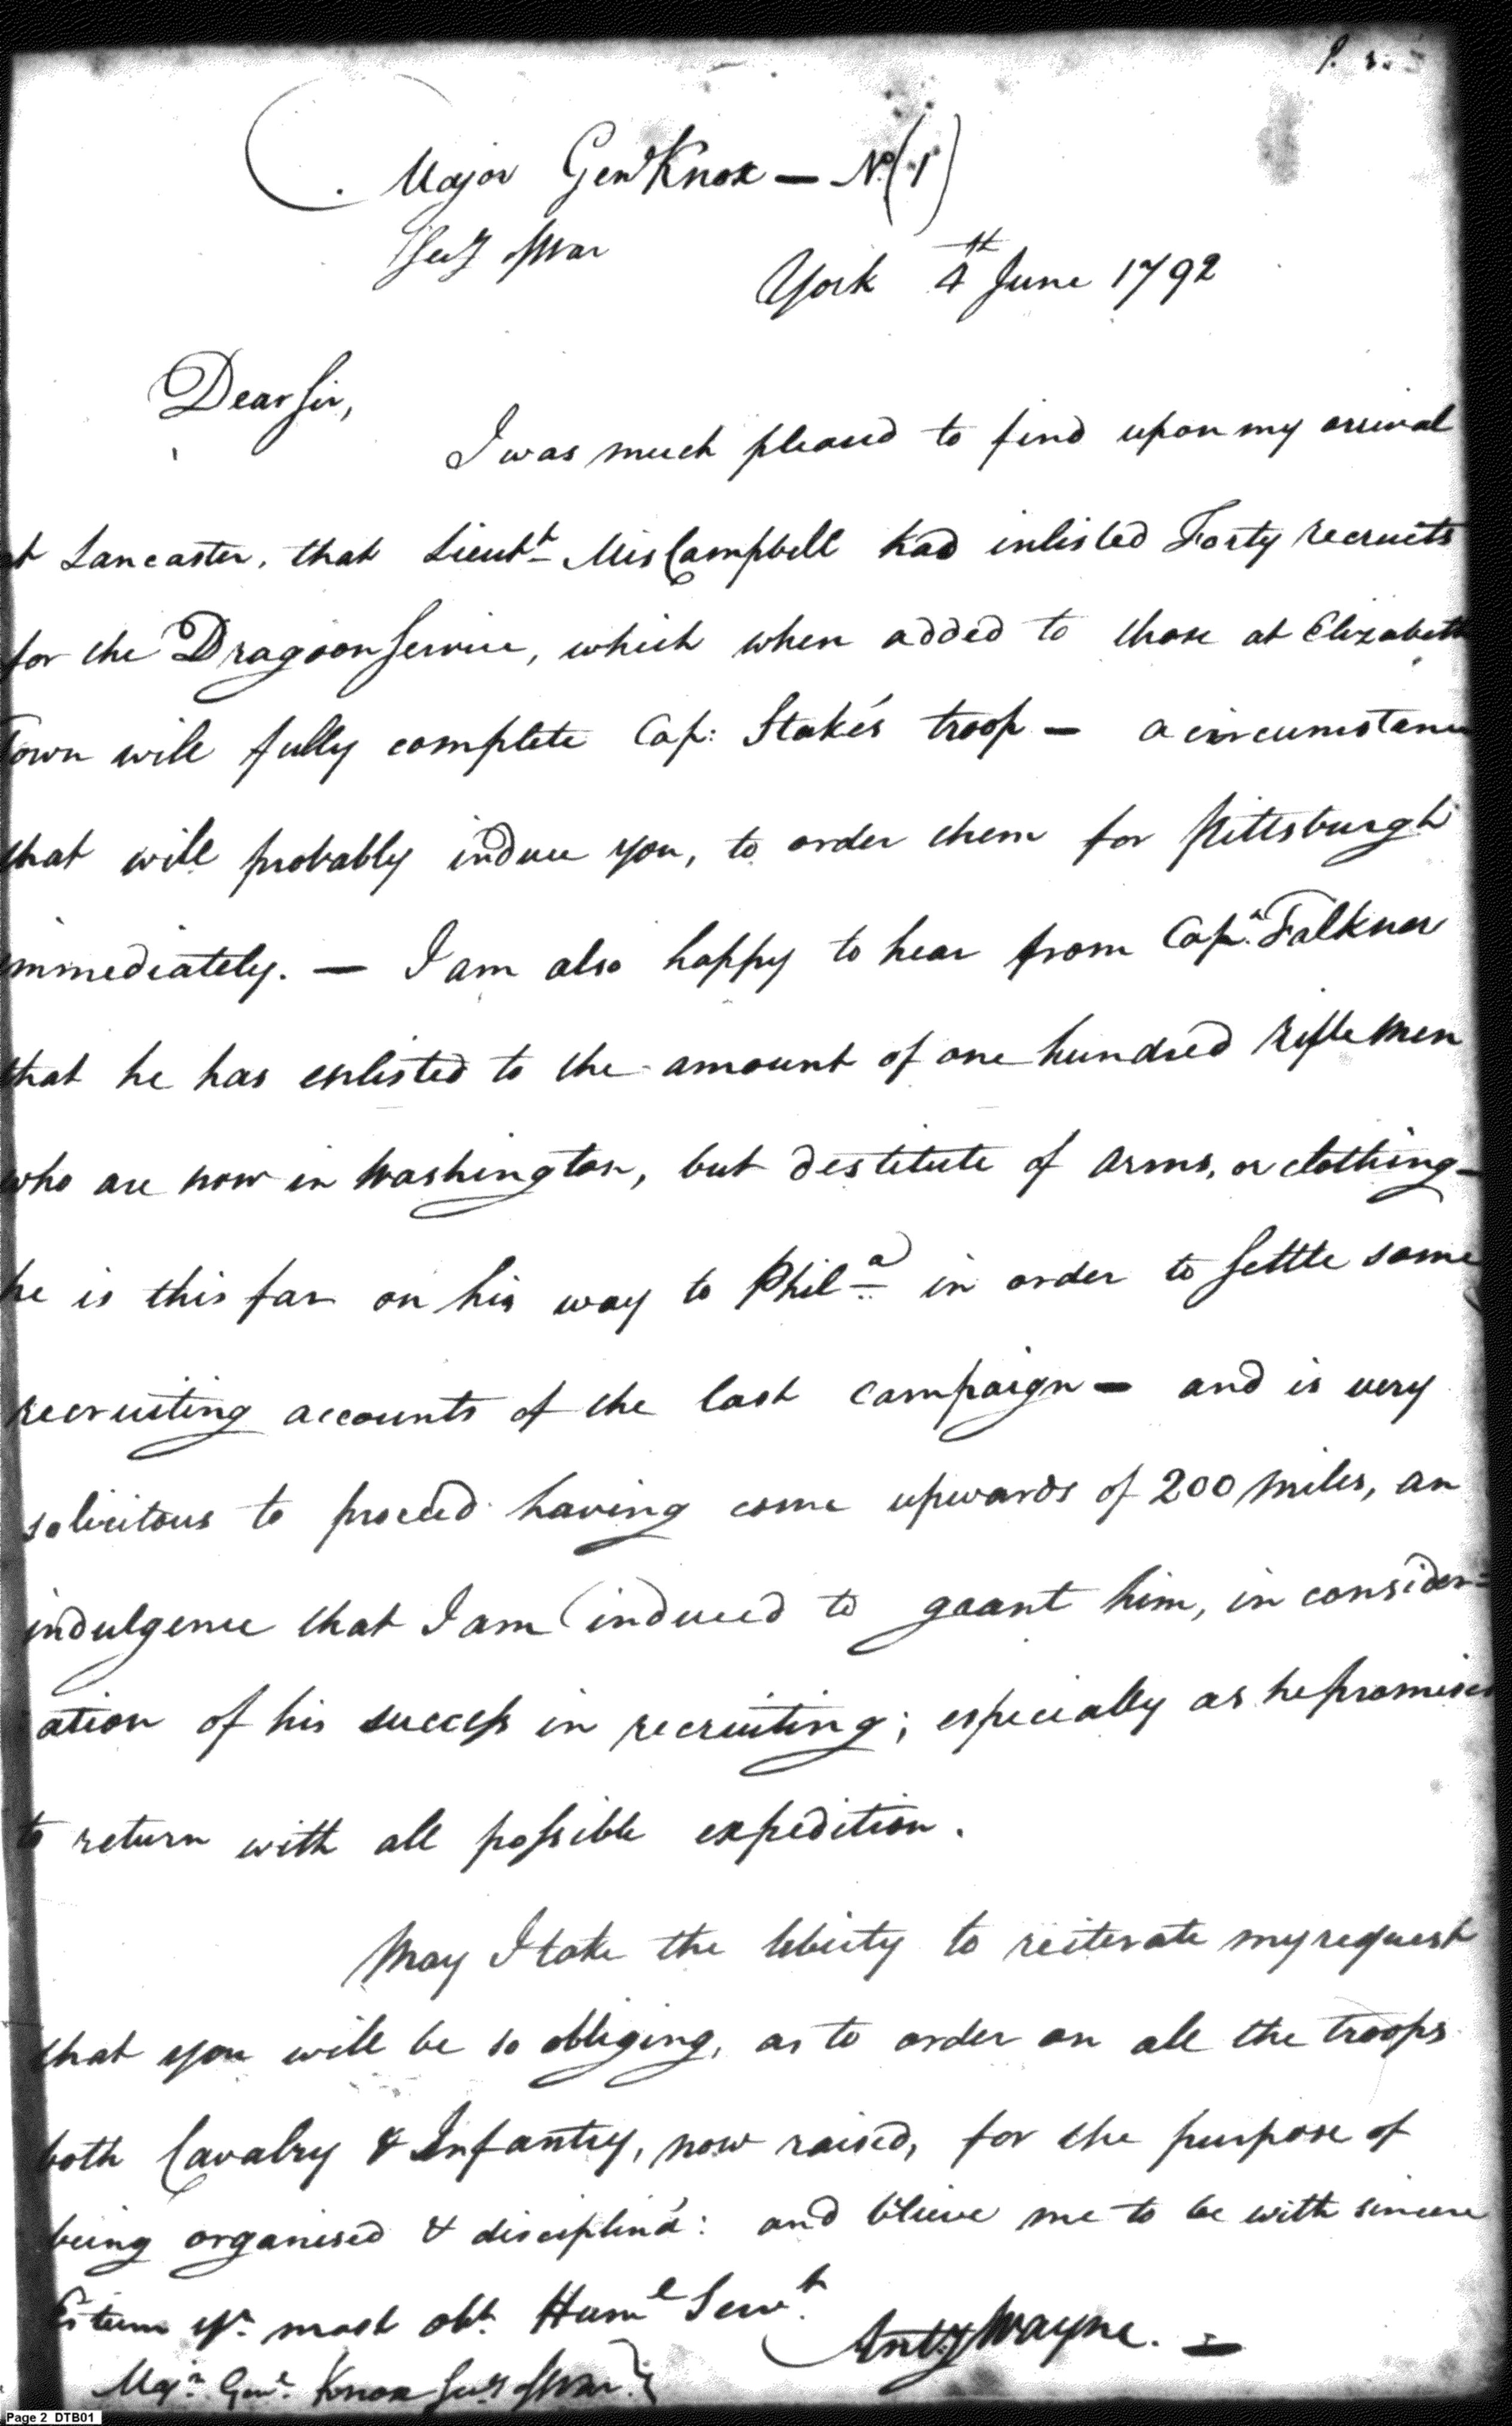 Major Gen.l Knox — No. (1)
Secy of War
York 4th June 1792
Dear Sir,
I was much pleased to find upon my arrival
at Lancaster, that Lieutt MisCampbell had inlisted Forty recruits
for the Dragoon Service, which when added to those at Elizabeth
Town will fully complete Cap: Stake's troop — a circumstance
that will probably induce you, to order them for Pittsburgh
immediately. — I am also happy to hear from Capn. Falkner
that he has enlisted to the amount of one hundred rifle men
who are now in Washington, but destitute of arms, or clothing —
he is this far on his way to Phila in order to settle some
recruiting accounts of the last campaign — and is very
solicitous to proceed having come upwards of 200 miles, an
indulgence that I am induced to graant him, in consider=
ation of his success in recruiting; especially as he promises
to return with all possible expedition.
May I take the liberty to reiterate my request
that you will be so obliging, as to order on all the troops
both Cavalry & Infantry, now raised, for the purpose of
being organised & disciplin'd: and b'lieve me to be with sincere
Esteem yr. most obt. Huml Servt.
Anty Wayne. —
Majr. Genl. Knox Secy of War }
Page 2 DTB01